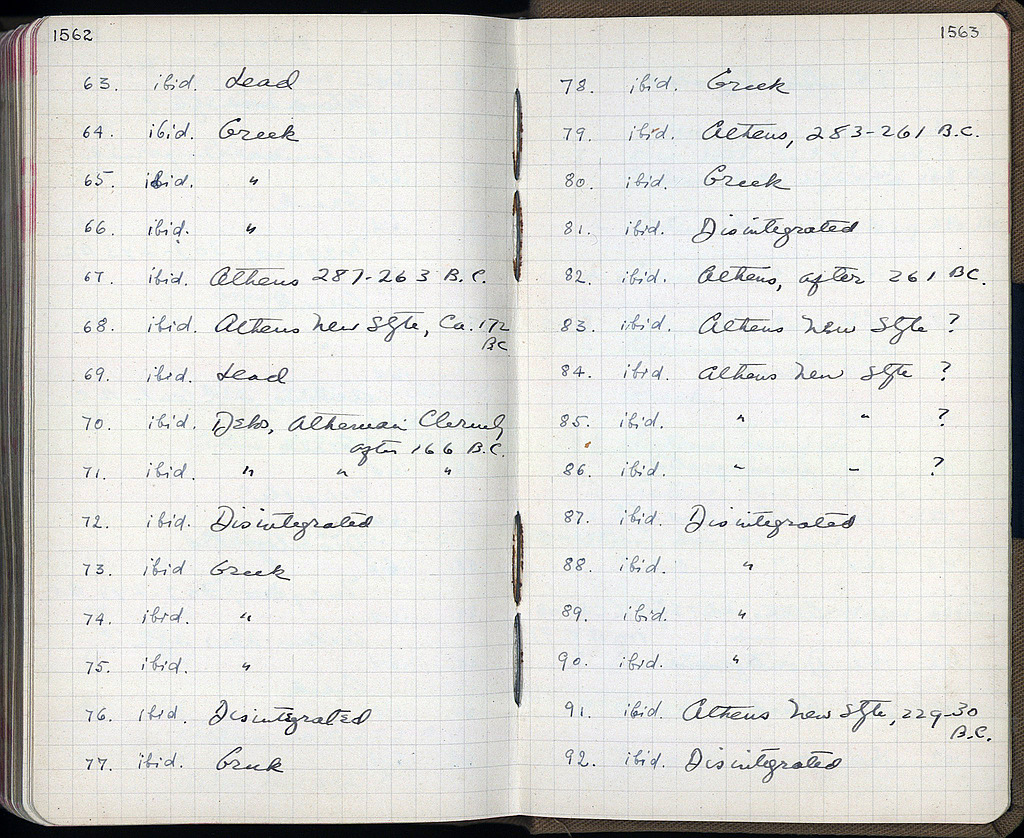 1562
63. ibid. Lead
64. ibid. Greek
65. ibid. "
66. ibid. "
67. ibid. Athens 287-263 B.C.
68. ibid. Athens New Style, Ca. 172
B.C.
69. ibid. Lead
70. ibid. Delos, Athenian Cleruchy
after 166 B.C.
71. ibid. " " "
72. ibid. Disintegrated
73. ibid Greek
74. ibid. "
75. ibid. "
76. ibid. Disintegrated
77. ibid. Greek
1563
78. ibid. Greek
79. ibid. Athens, 283-261 B.C.
80. ibid. Greek
81. ibid. Disintegrated
82. ibid. Athens, after 261 BC.
83. ibid. Athens New Style ?
84. ibid. Athens New Style ?
85. ibid. " " ?
86. ibid. " " ?
87. ibid. Disintegrated
88. ibid. "
89. ibid. "
90. ibid. "
91. ibid. Athens New Style, 229-30
B.C.
92. ibid. Disintegrated